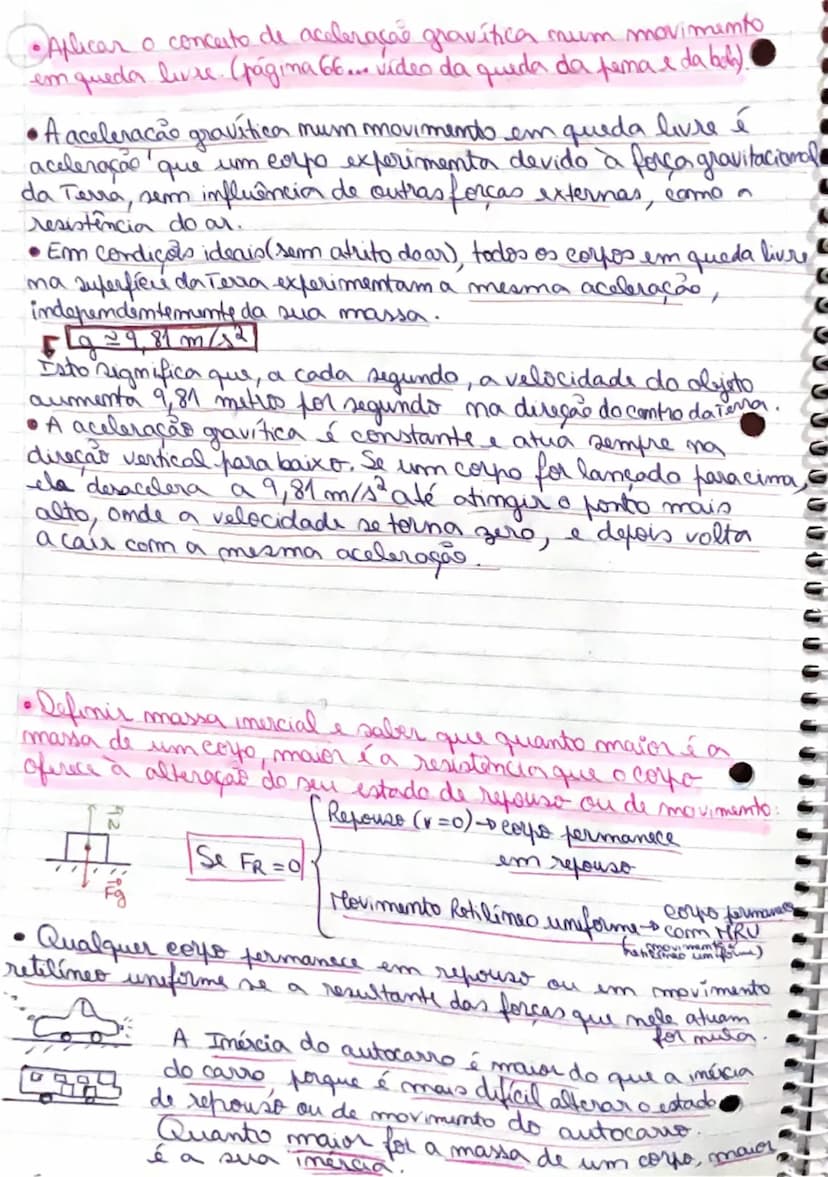 • Aplicar o conceito de aceleração gravítica num movimento
em queda livre. (página 66... vídeo da queda da pena e da bola)
• A aceleração gravítica num movimendo em queda livre é
aceleração que um corpo experimenta devido à força gravitacional
da Terra, sem influência de outras forças externas, como a
resistência do ar.
• Em condições ideais (sem atrito do ar), todos os corpos em queda livre
na superfície da Terra experimentam a mesma aceleração,
independentemente da sua massa.
g ≃ 9,81 m/s²
Isto significa que, a cada segundo, a velocidade do objeto
aumenta 9,81 metros por segundo na direção do centro da Terra.
• A aceleração gravítica é constante e atua sempre na
direção vertical para baixo. Se um corpo for lançado para cima,
ele desacelera a 9,81 m/s² até atingir o ponto mais
alto, onde a velocidade se torna zero, e depois volta
a cair com a mesma aceleração.
• Definir massa inercial e saber que quanto maior é a
massa de um corpo, maior é a resistência que o corpo
oferece à alteração do seu estado de repouso ou de movimento:
N
Fg
Se FR = 0
Repouso (v=0) → corpo permanece
em repouso
Movimento Retilíneo uniforme → corpo permanece
com MRU
(movimento
retilíneo uniforme)
• Qualquer corpo permanece em repouso ou em movimento
retilíneo uniforme se a resultante das forças que nele atuam
for nula.
A Inércia do autocarro é maior do que a inércia
do carro, porque é mais difícil alterar o estado
de repouso ou de movimento do autocarro.
Quanto maior for a massa de um corpo, maior
é a sua inércia.